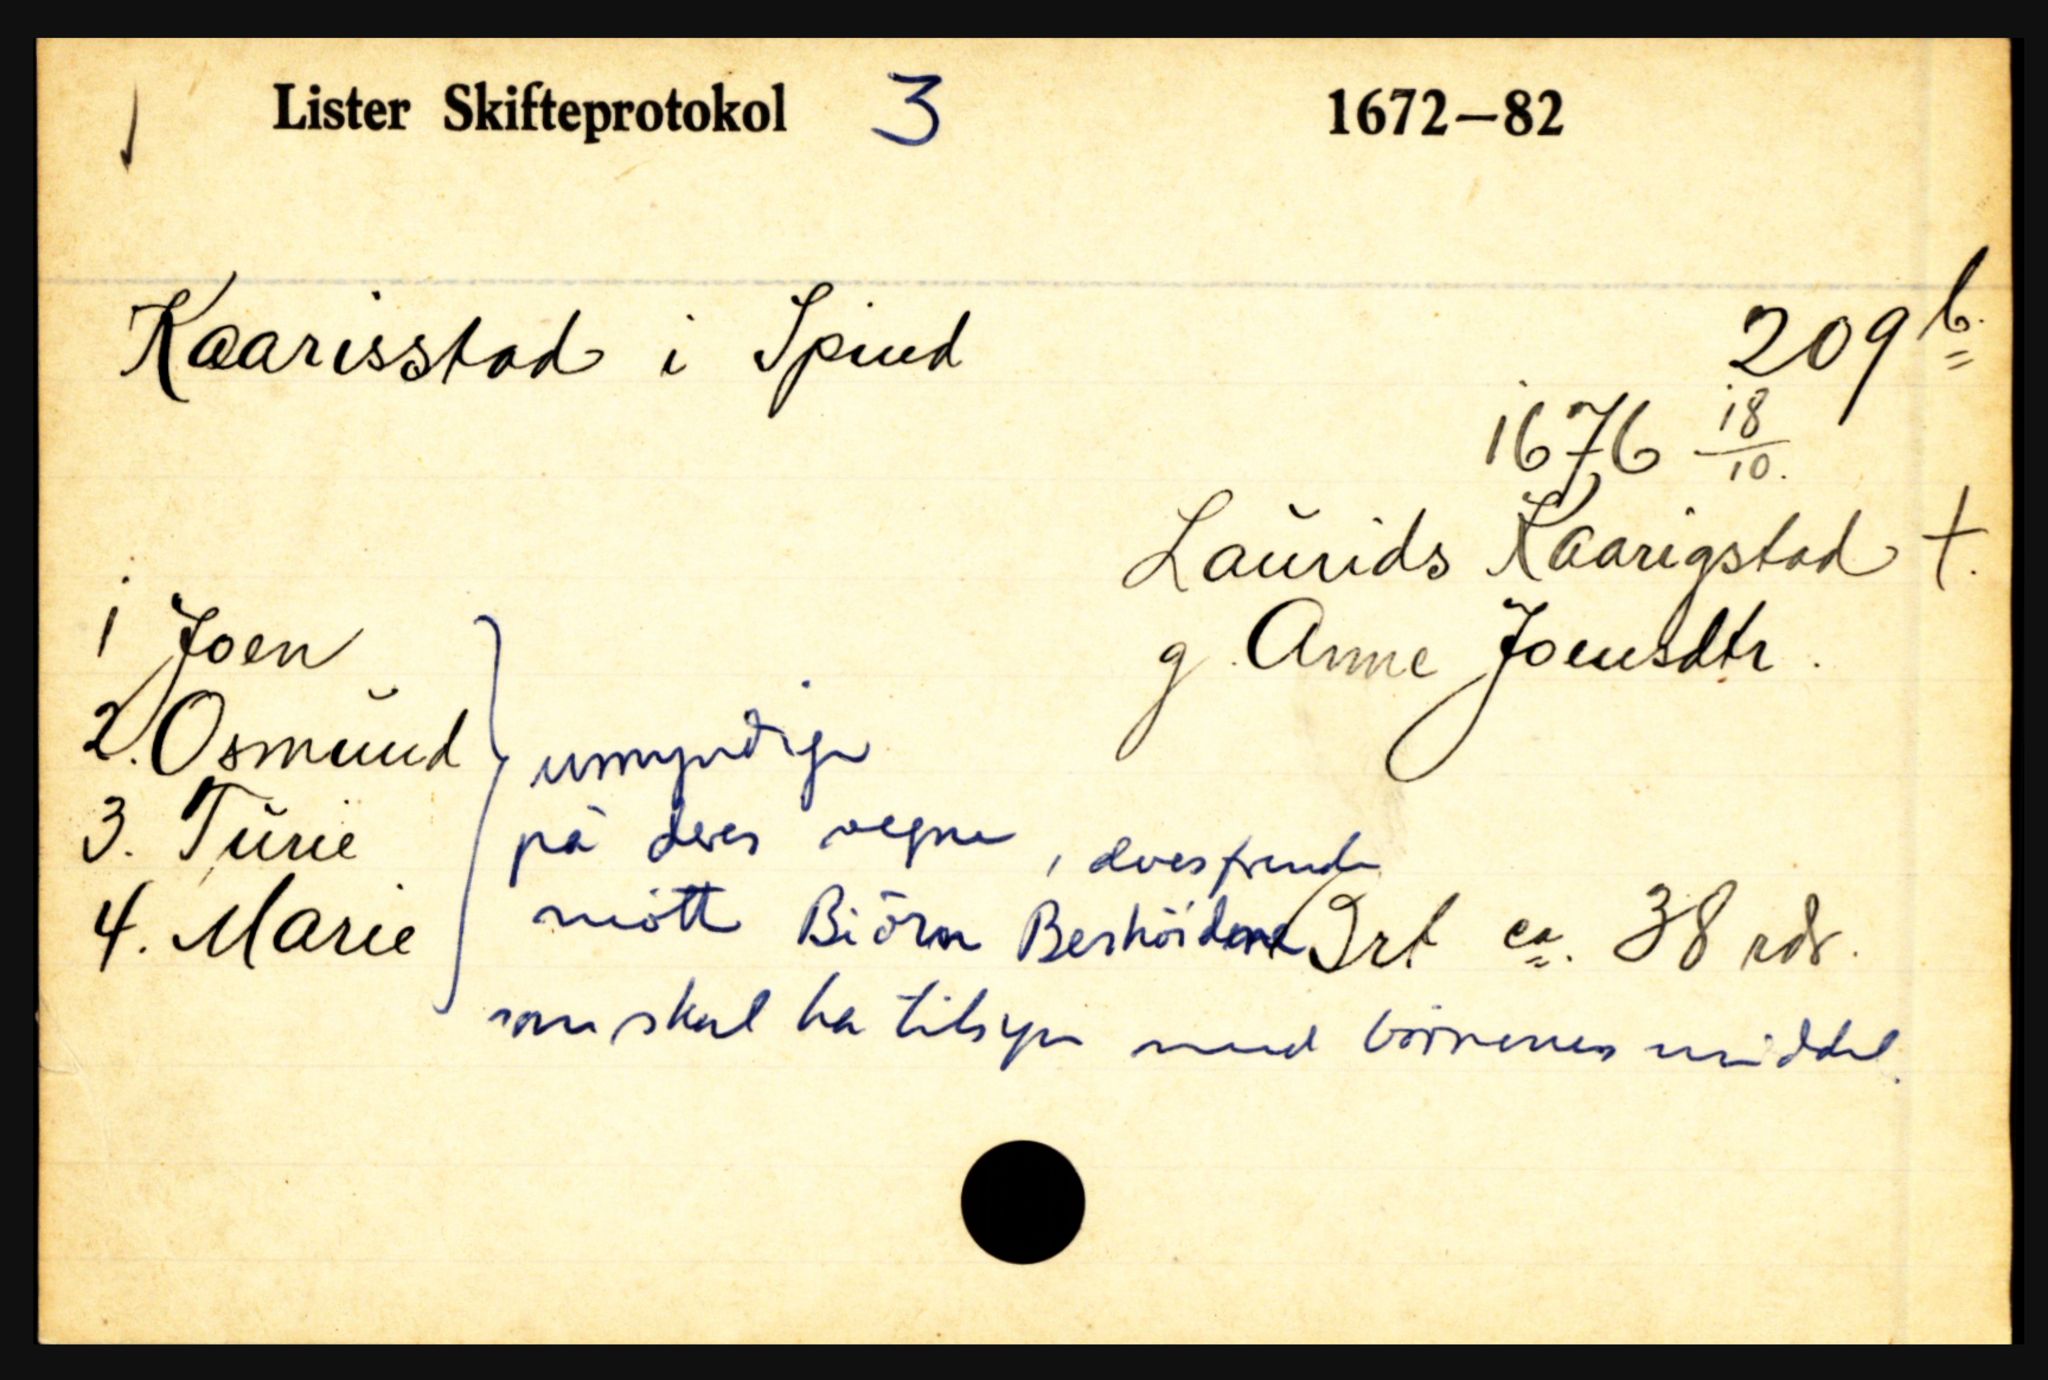 Lister Skifteprotokol 3 1672—82
Kaarisstad i Spind 209 b.
1676 18/10.
Laurids Kaarigstad †.
g. Anne Joensdtr.
1 Joen
2. Osmund
3. Turie
4. Marie
umyndige
på deres vegne,
mött Biörn
Brt ca. 38 rdr.
som skal ha tilsyn med börnenes middel.